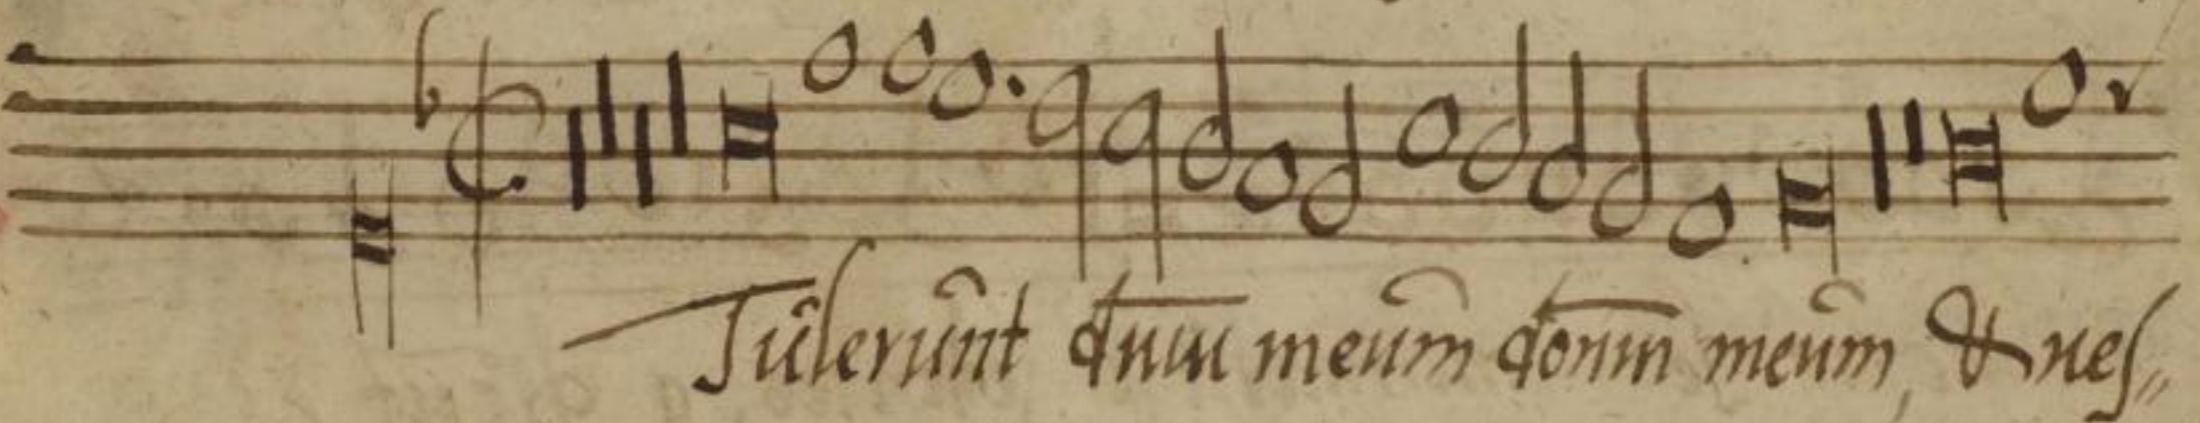 Tulerunt dnm meum domm meum, & nes=